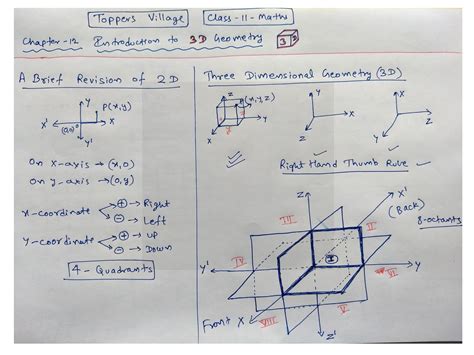 Toppers Village
Class-11-Maths
Chapter-12 Introduction to 3D Geometry 3D
A Brief Revision of 2D
Y
P(x,y)
X' (0,0) X
Y'
On X-axis → (x,0)
On y-axis → (0,y)
x-coordinate
+ → Right
- → Left
Y-coordinate
+ → Up
- → Down
4 - Quadrants
Three Dimensional Geometry (3D)
Z
(x,y,z)
Y
X
Y
X
Z
X
Y
Z
Right Hand Thumb Rule
Z
X'
(Back)
8-octants
III
II
IV
I
Y'
Y
VI
Front X
VIII
V
Z'